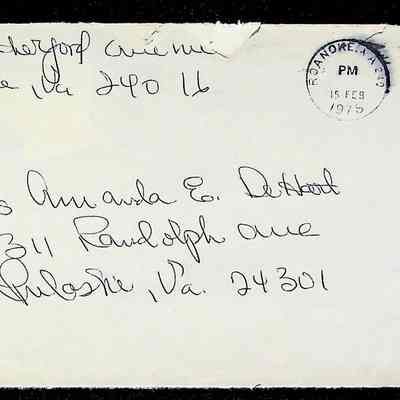 therford avenue
e, Va 24016
ROANOKE, VA 240
PM
15 FEB
1975
s Amanda E. DeHart
311 Randolph ave
Pulaski, Va. 24301